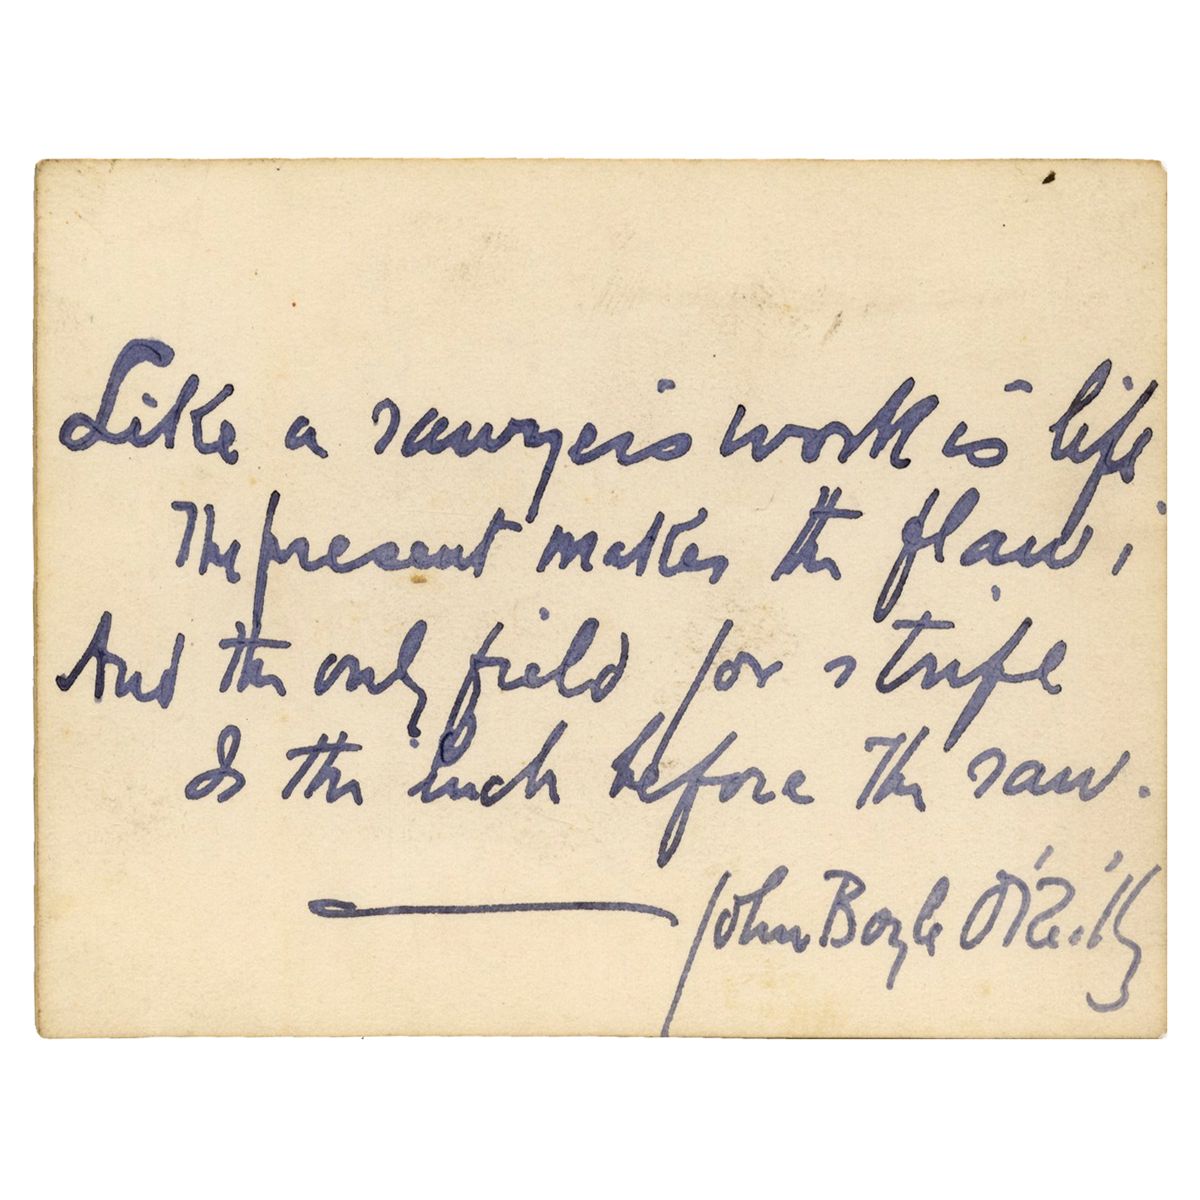 Like a sawyer's work is life.
The present makes the flaw;
And the only field for strife
Is the inch before the saw.
John Boyle O'Reilly